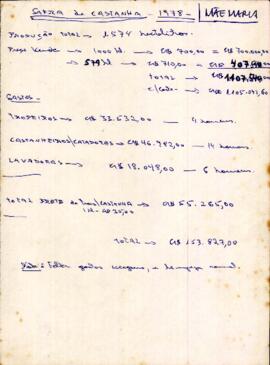 SAFRA DE CASTANHA - 1978 - MÃE MARIA
PRODUÇÃO TOTAL → 1574 hectolitros.
Preço Venda → 1000 hl → Cr$ 700,00 = Cr$ 700.000,00
→ 574 hl → Cr$ 710,00 = Cr$
TOTAL → Cr$
Cr$ 1.105.093,60
GASTOS -
TROPEIROS → Cr$ 33.632,00 — 4 homens.
CASTANHEIROS/CATADORES → Cr$ 46.982,00 — 14 homens
LAVADORES → Cr$ 18.048,00 — 6 homens.
TOTAL FRETE DE CASTANHA → Cr$ 55.265,00
1 hl - Cr$ 35,00
TOTAL → Cr$ 153.827,00